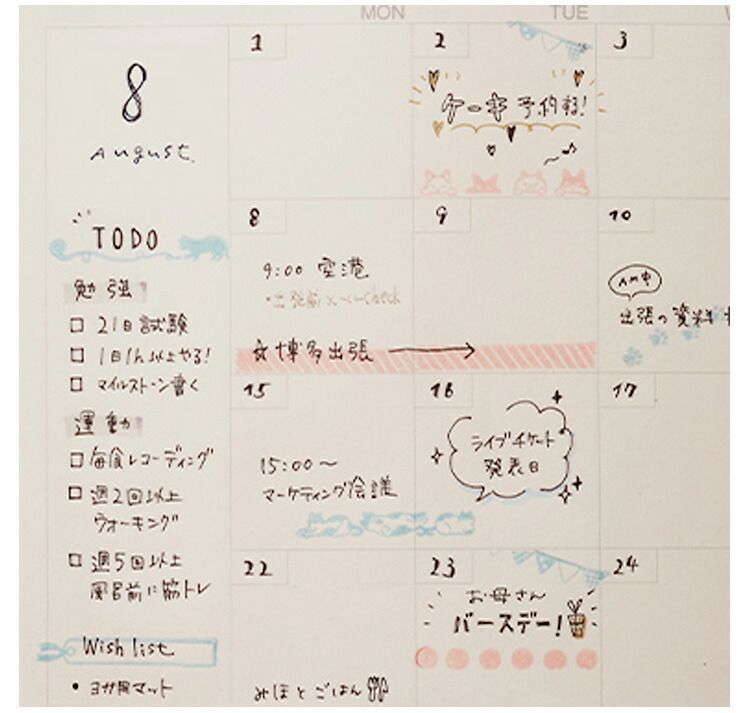 MON
TUE
8
August.
TODO
勉強
□ 21日試験
□ 1日1h以上やる!
□ マイルストーン書く
運動
□ 毎食レコーディング
□ 週2回以上
ウォーキング
□ 週5回以上
風呂前に筋トレ
Wish list
• ヨガ用マット
1
2
ケーキ予約
3
8
9:00 空港
・出発前メールCheck
☆博多出張
9
10
AM中
出張の資料
15
15:00～
マーケティング会議
16
ライブチケット
発表日
17
22
みほとごはん
23
お母さん
バースデー!
24